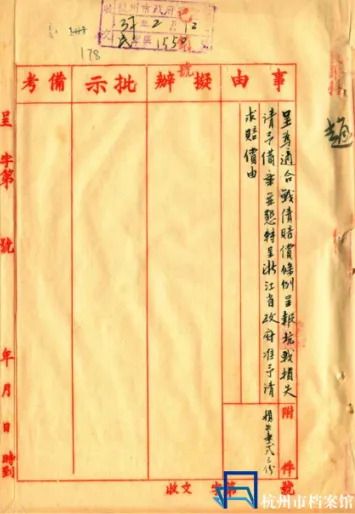 杭州市政府
37年2月12
收文 字第1559號
178
事由
擬辦
批示
備考
呈為適合戰債賠償條例呈報抗戰損失
請予備案並懇特呈浙江省政府准予請
求賠償由
附件
損失表式三份
號
收文 字第
呈字第 號
年 月 日 時到
杭州市档案馆